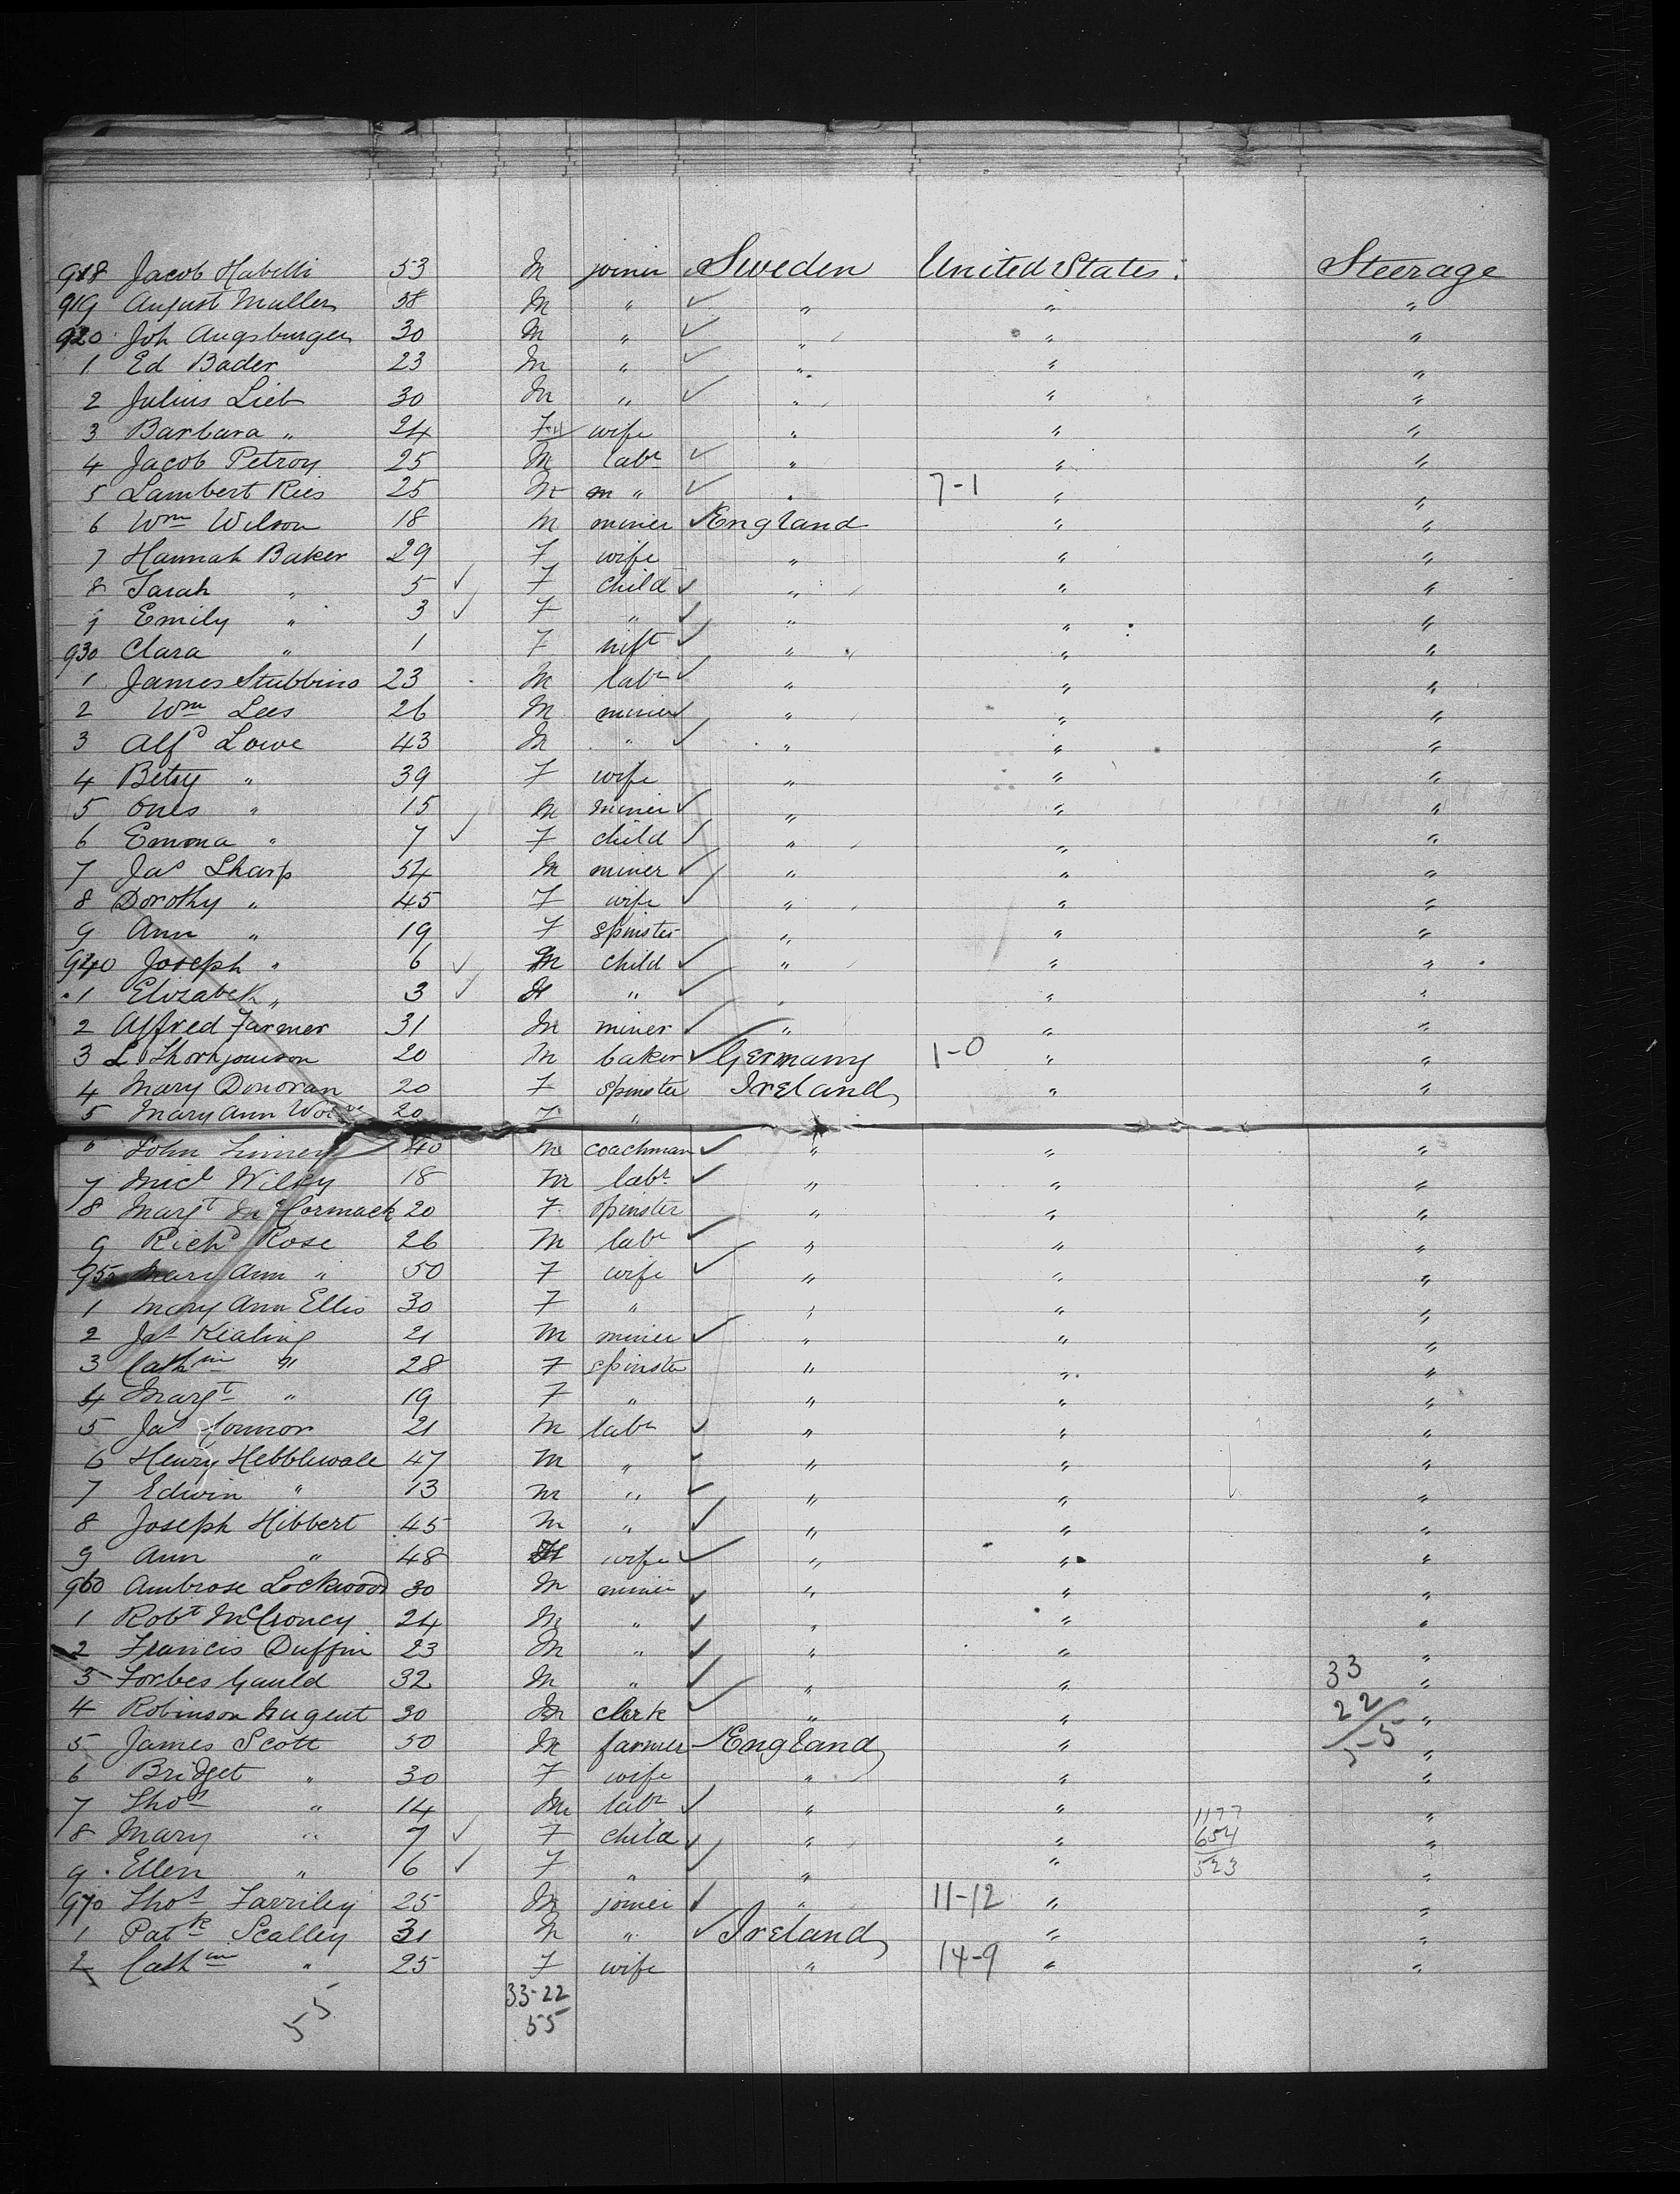 918 Jacob Habilli 53 M joiner Sweden United States Steerage
919 August Muller 38 M " ✓ " " "
920 Joh Augsburger 30 M " ✓ " " "
1 Ed Bader 23 M " ✓ " " "
2 Julius Lieb 30 M " ✓ " " "
3 Barbara " 24 F wife " " "
4 Jacob Petroy 25 M labr ✓ " " "
5 Lambert Ries 25 M " ✓ " 7-1 " "
6 Wm Wilson 18 M miner ✓ England " "
7 Hannah Baker 29 F wife " " "
8 Sarah " 5 ✓ F child ✓ " " "
9 Emily " 3 ✓ F " ✓ " " "
930 Clara " 1 F inft ✓ " " "
1 James Stubbins 23 M labr ✓ " " "
2 Wm Lees 26 M miner ✓ " " "
3 Alfd Lowe 43 M " ✓ " " "
4 Betsy " 39 F wife " " "
5 Ones " 15 M miner ✓ " " "
6 Emma " 7 ✓ F child ✓ " " "
7 Jas Sharp 54 M miner ✓ " " "
8 Dorothy " 45 F wife ✓ " " "
9 Ann " 19 F spinster " " "
940 Joseph " 6 ✓ M child ✓ " " "
1 Elizabeth " 3 ✓ " ✓ " " "
2 Alfred Farmer 31 M miner ✓ " " "
3 L 20 M baker ✓ Germany 1-0 " "
4 Mary Donovan 20 F spinster Ireland " "
5 Mary Ann 20 F "
6 John 40 M coachman ✓ " " "
7 Micl Wiley 18 M labr ✓ " " "
8 Margt McCormack 20 F spinster " " "
9 Richd Rose 26 M labr ✓ " " "
950 Mary Ann " 50 F wife ✓ " " "
1 Mary Ann Ellis 30 F " " " "
2 Jas Kealing 21 M miner ✓ " " "
3 Cathin " 28 F spinster " " "
4 Margt " 19 F " " " "
5 Jas Connor 21 M labr ✓ " " "
6 Henry Hebblewale 47 M " ✓ " " "
7 Edwin " 13 M " ✓ " " "
8 Joseph Hibbert 45 M " ✓ " " "
9 Ann " 48 wife ✓ " " "
960 Ambrose Lockwood 30 M miner ✓ " " "
1 Robt McCroney 24 M " ✓ " " "
2 Francis Duffin 23 M " ✓ " " "
3 Forbes Gauld 32 M " ✓ " " 33 "
4 Robinson Nugent 30 M clerk ✓ " " 22 "
5 James Scott 50 M farmer England " 55 "
6 Bridget " 30 F wife " " "
7 Thos " 14 M labr ✓ " " 1177 "
8 Mary " 7 ✓ F child ✓ " " 654 "
9 Ellen " 6 ✓ F " ✓ " " 523 "
970 Thos Farriley 25 M joiner ✓ " 11-12 " "
1 Patk Scalley 31 M " ✓ Ireland " "
2 Cathin " 25 F wife " 14-9 " "
55 33-22
55